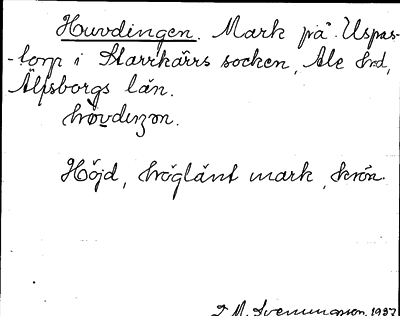 Huvdingen. Mark på Uspas-
-torp i Starrkärrs socken, Ale hrd,
Älfsborgs län.
Höjd, höglänt mark, krön.
D. M. Svenungsson. 1937